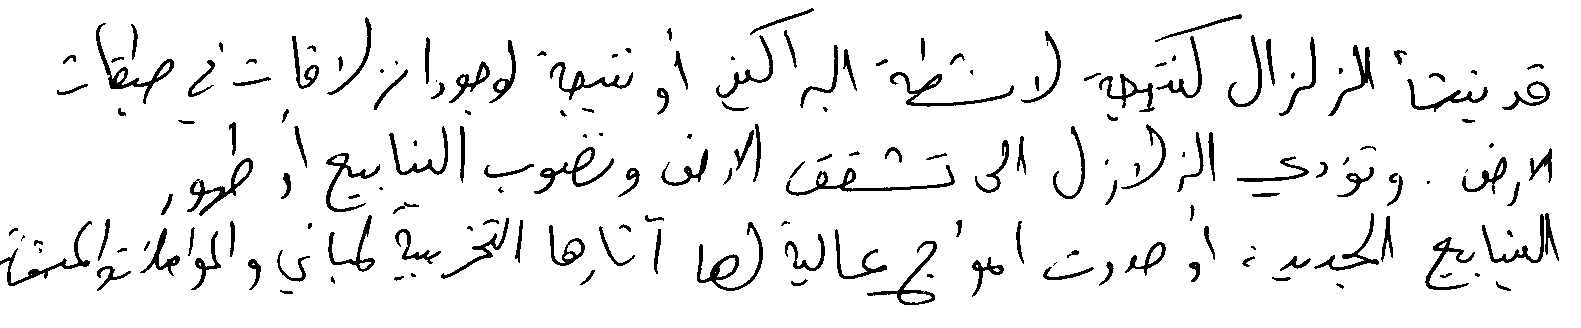 قد ينشأ الزلزال كنتيجة لانشطة البراكين أو نتيجة لوجود انزلاقات في طبقات
الارض . وتؤدي الزلازل الى تشقق الارض ونضوب الينابيع أو ظهور
الينابيع الجديدة أو حدوث امواج عالية لها آثارها التخريبية للمباني